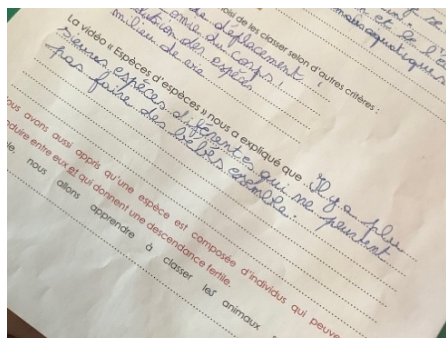 mass aquatiques
et le l'e
ois de les classer selon d'autres critères :
de déplacement,
omie du corps,
tution des espèces
milieu de vie
La vidéo « Espèces d'espèces » nous a expliqué que Il y a plu
sieures espèces diférentes qui ne peuvent
pas faire des bébés ensemble.
ous avons aussi appris qu'une espèce est composée d'individus qui peuve
oduire entre eux et qui donnent une descendance fertile.
le, nous allons apprendre à classer les animaux